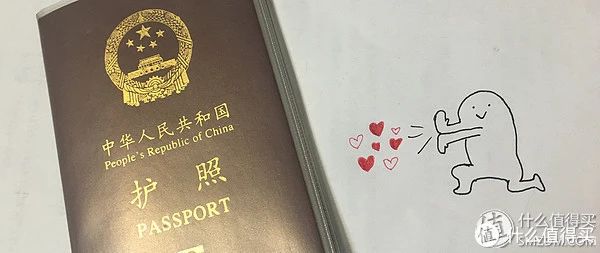 中华人民共和国
People's Republic of China
护照
PASSPORT
值 什么值得买
SMZDM.COM